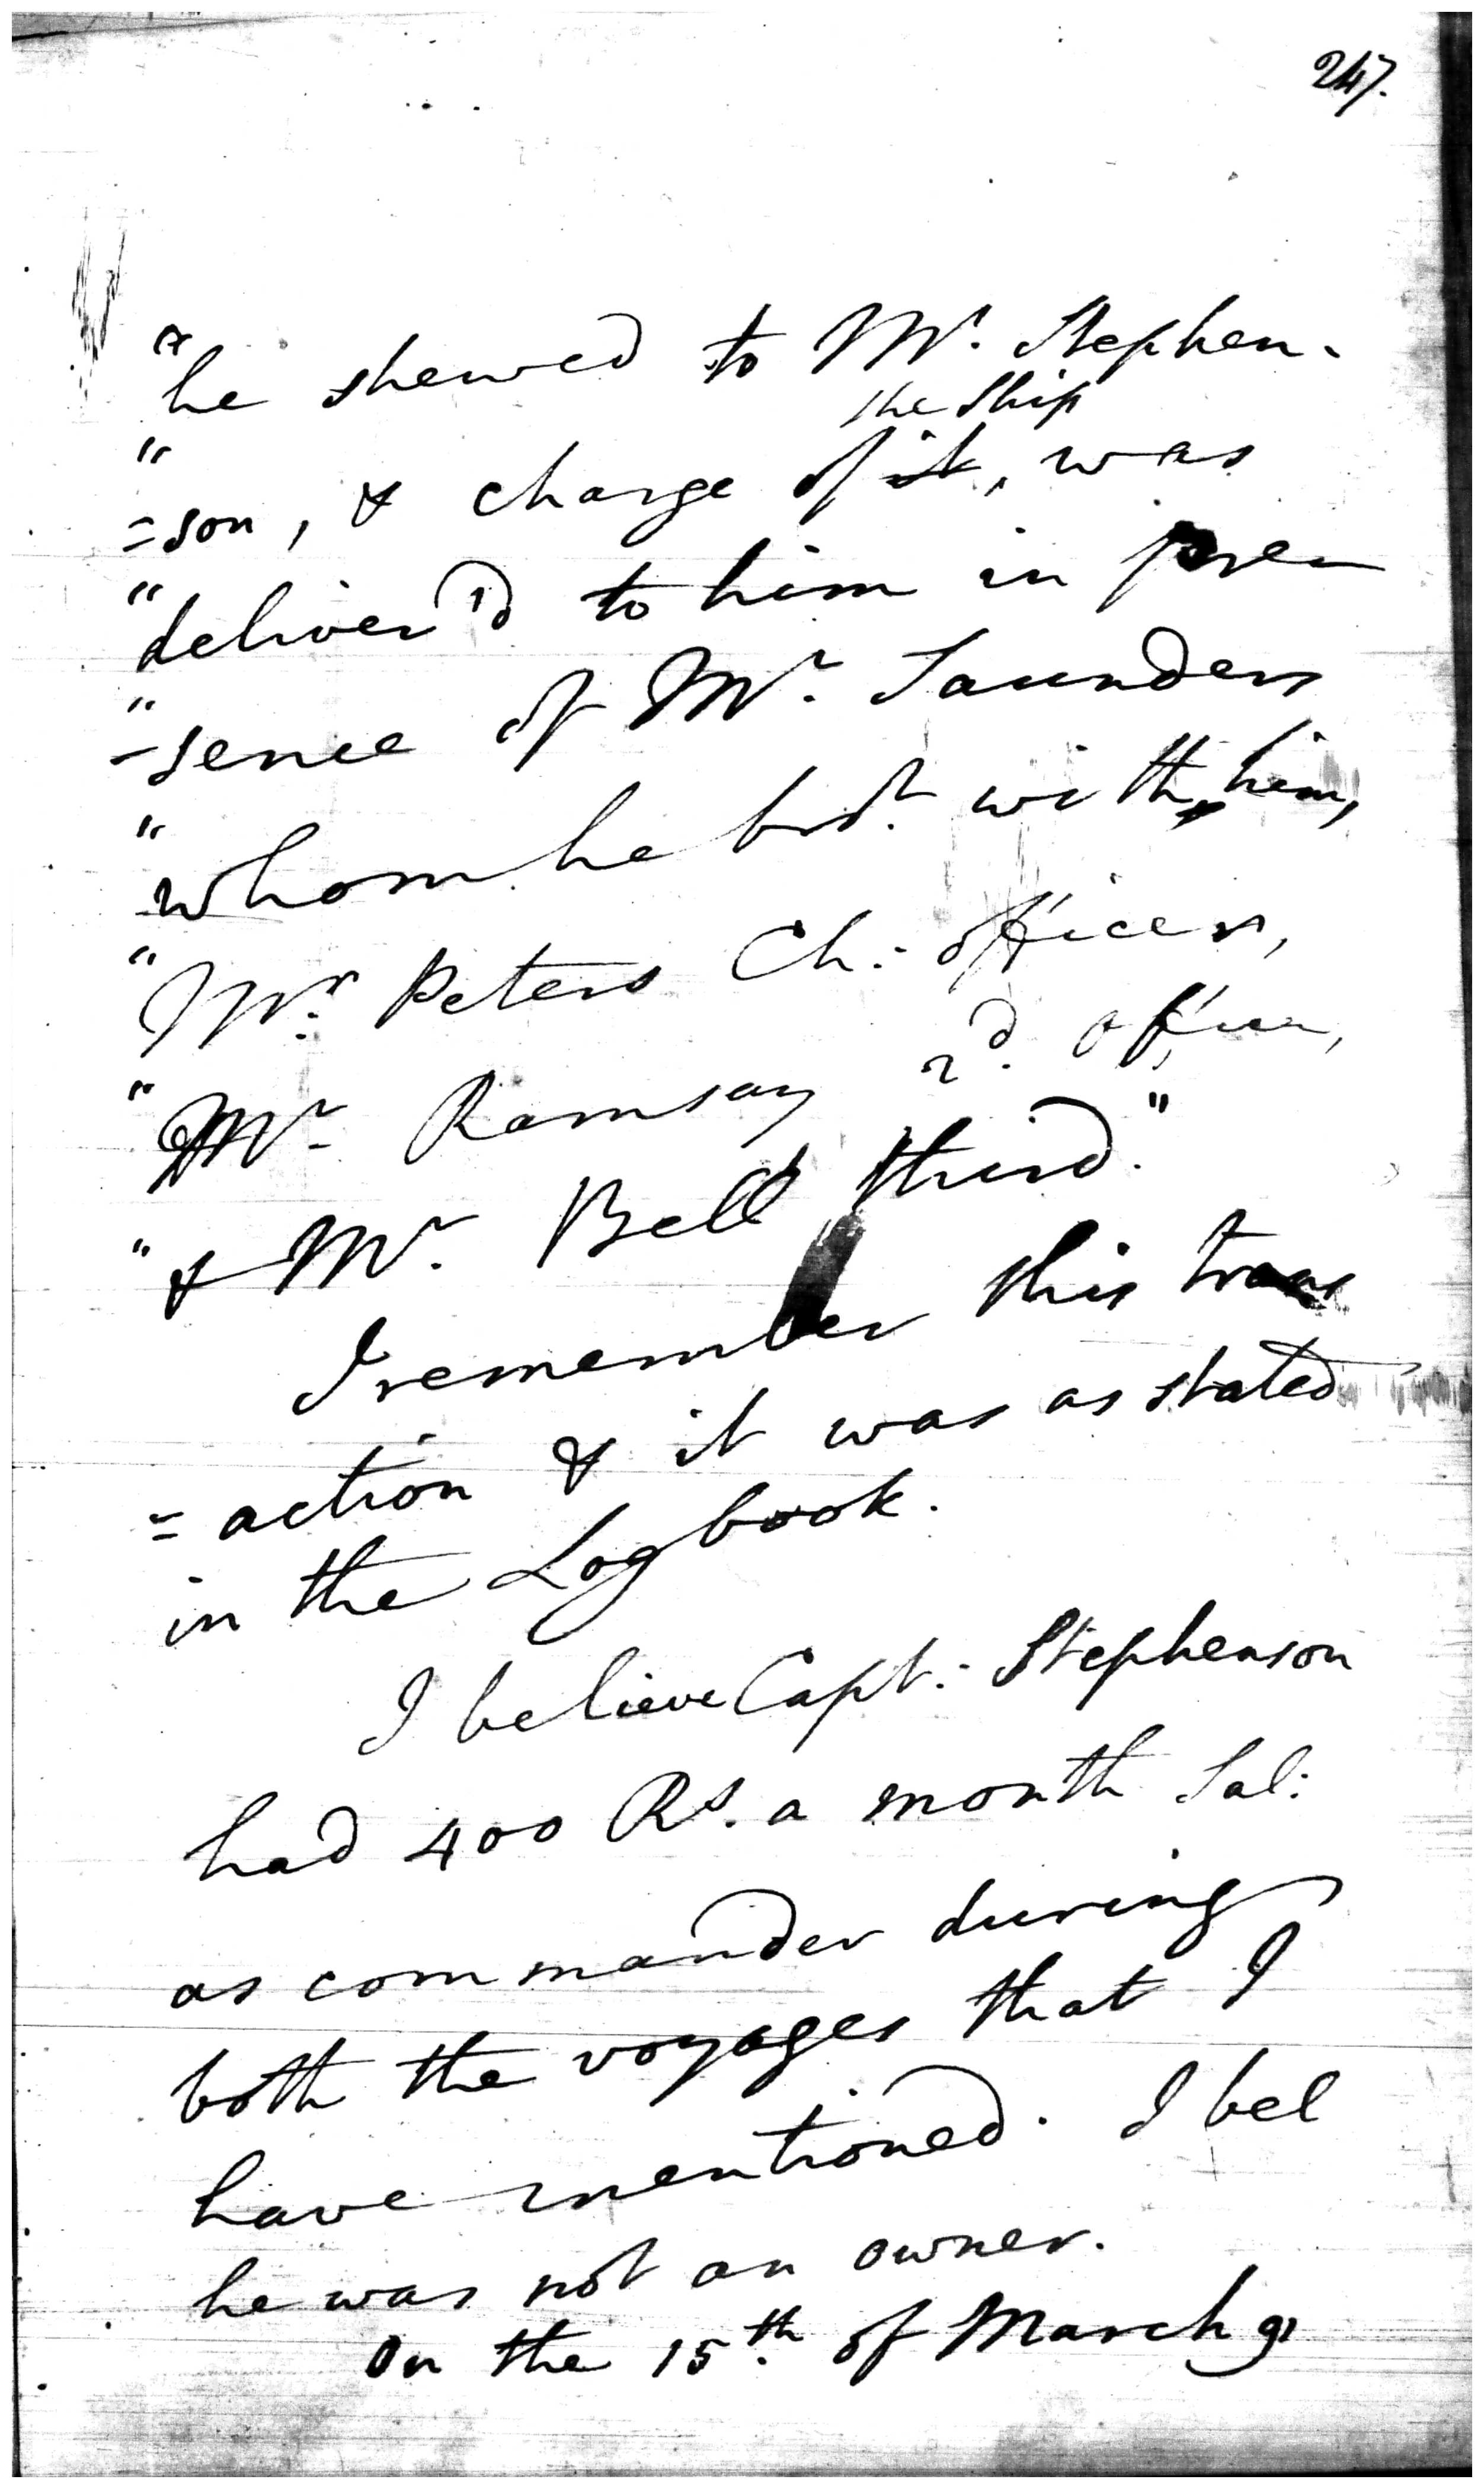 247.
"he shewed to Mr. Stephen-
the Ship
"=son, & charge of it, was
"deliver'd to him in pre
"=sence of Mr. Saunders
"whom he brot. with him,
"Mr. Peters Ch: officer,
"Mr. Ramsay 2d. officer,
"& Mr. Bell third."
I remember this trans
=action & it was as stated
in the Log book.
I believe Capt: Stephenson
had 400 Rs. a month Sal:
as commander during
both the voyages that I
have mentioned. I bel
he was not an owner.
On the 15th. of March 91